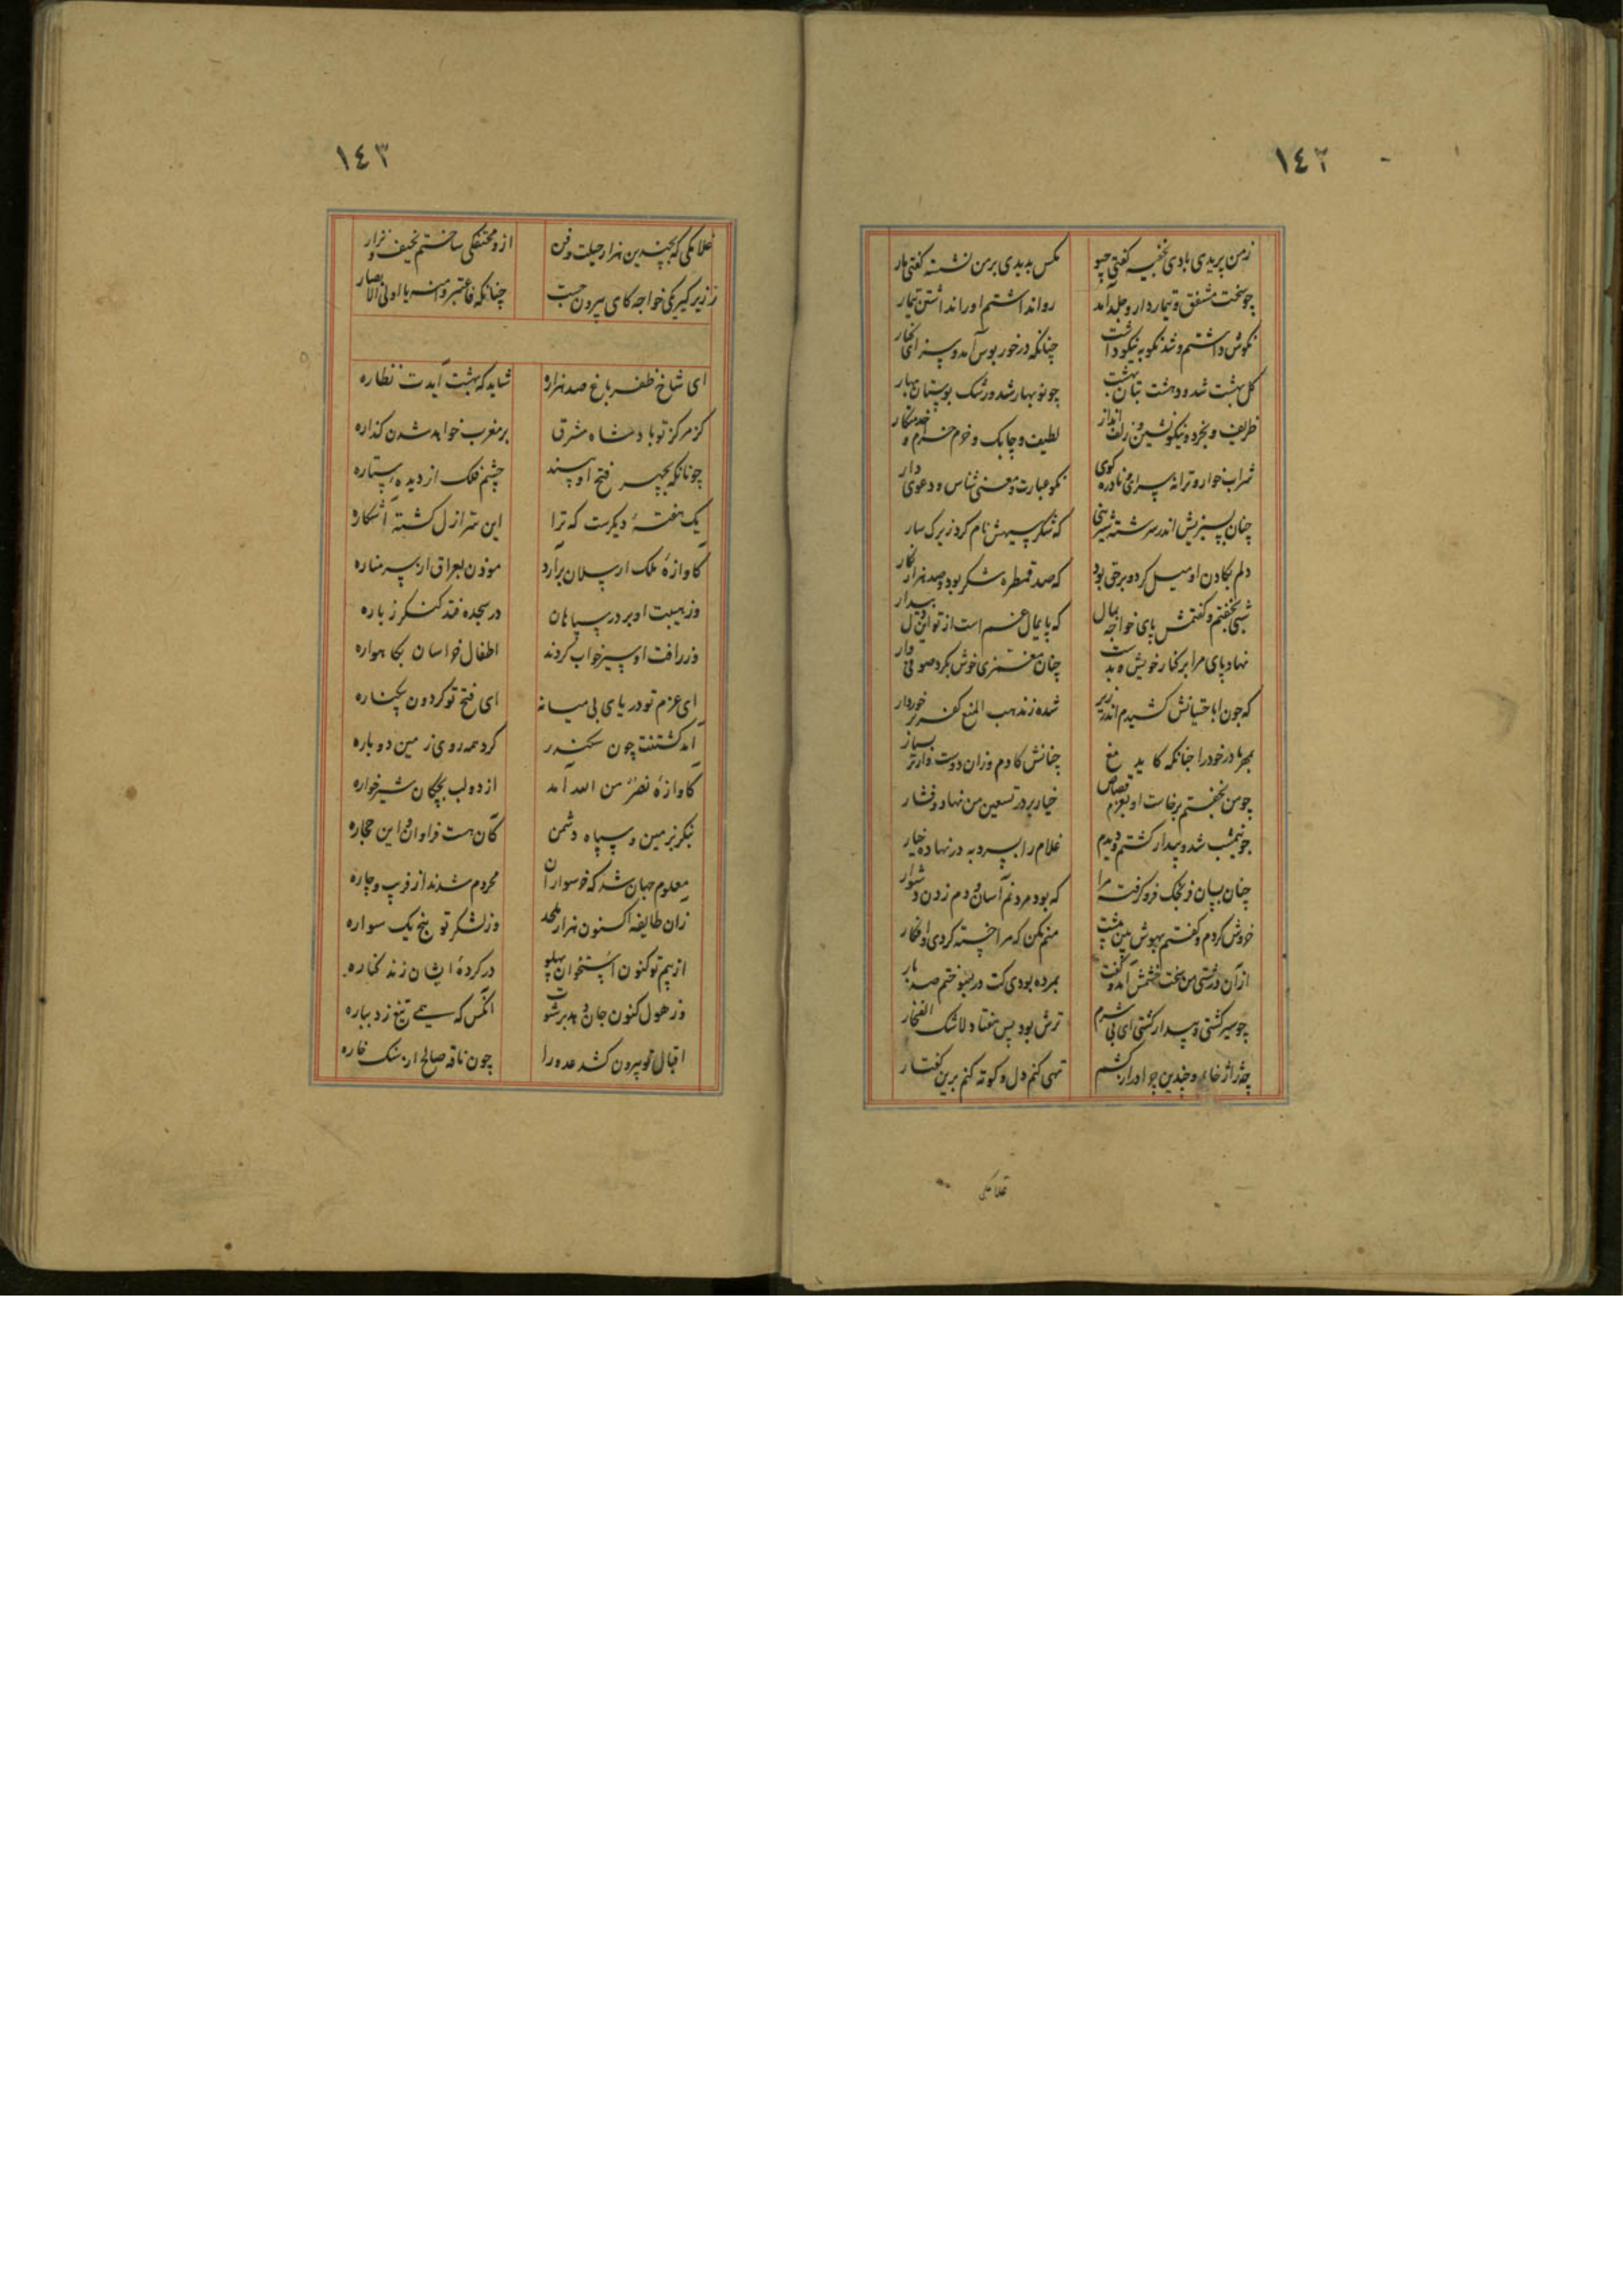 ١٤٢
زمن پریدی بادی بخفیه گفتی چو
مکس بدیدی بر من نشسته گفتی مار
چو سخت مشفق و تیماردار و جلد آمد
روا نداشتم او را نداشتن تیمار
نکوش داشتم و شد نکو به نیکو داشت
چنانکه درخور بوس آمد و سزای کنار
کل بهشت شد و دهشت بتان بهشت
چو نوبهار شد و رشک بوستان بهار
ظریف و بخرد و نیکو نشین و زلف انداز
لطیف و چابک و خوم خرام و خدمتکار
شراب خوار و ترانه سرای و نادره کوی
نکو عبارت و معنی شناس و دعوی دار
چنان بسیرتش اندر سرشته شیرینی
که شکر سیهش نام کرد زیرک سار
دلم بکادن او میل کرد و برحق بود
که صد قمطره شکر بود و صد هزار نکار
شبی بخفتم و گفتمش پای خواجه بمال
که پایمال غم است از تو این دل بیدار
نهاد پای مرا بر کنار خویش و بدست
چنان مغمزی خوش بکرد صوفی وار
که چون اباحتیانش کشیدم اندر زیر
شده ز مذهب المنع کفر برخوردار
بمهر مادر خود را چنانکه کاید مغ
چنانش کادم وزان دوست وارتر بسیار
چو من بخفتم برخاست او بعزم قصاص
خیار بر در تسعین من نهاد و فشار
چو نیمشب شد و بیدار گشتم و دیدم
غلام را بسر ده در نهاده خیار
چنان بسان فرنجک فرو گرفت مرا
که بود مردنم آسان و دم زدن دشوار
خروش کردم و گفتم بهوش بین پشت
منم مکن که مرا خسته کردی و افکار
از آن درشتی من سخت خشمش آمد و گفت
بمرده بودی کت در سپوختم صد بار
چو سیر گشتی و بیدار گشتی ای بی شرم
ترش بود پس هفتاد لاشک الفخار
چه ژاژ خاء و چندین جوادرار کشم
تهی کنم دل و کوته کنم برین گفتار
غلامکی
١٤٣
غلامکی که بچندین هزار حیلت و فن
ازو مخنثکی ساختم نحیف و نزار
ز زیر گیر یکی خواجه کای بیرون جست
چنانکه فاعتبروا منه یا اولی الابصار
ای شاخ ظفر باغ صد هزاره
شاید که بهشت آیدت نظاره
کز مرکز تو بادشاه مشرق
بر مغرب خواهد شدن گذاره
چونانکه بچهر فتح او بیند
چشم فلک از دیده ستاره
یک هفتهٔ دیگرست که ترا
این سر ازل گشته آشکاره
کاوازهٔ ملک ارسلان برآرد
موذن بعراق از سر مناره
وز هیبت او بر در سپاهان
در سجده فتد کنگر ز باره
وز رافت او سیر خواب گردند
اطفال خراسان بگاهواره
ای عزم تو دریای بی میانه
ای فتح تو گردون بیکناره
آمد گشتنت چون سکندر
گرد همه روی زمین دوباره
کاوازهٔ نصر من الله آمد
از دو لب بچکان شیرخواره
بنکر بزمین و سپاه دشمن
کان هست فراوان و این حجاره
معلوم جهان شد که خر سواران
محروم شدند از فریب و چاره
زان طایفه اکنون هزار ملحد
وز لشکر تو پنج یک سواره
از بیم تو کنون استخوان پهلو
در گردهٔ ایشان زند کناره
وز هول کنون جان و بدبر شوت
آنکس که همی تیغ زد بباره
اقبال تو بیرون کشد عدو را
چون ناقهٔ صالح از سنک خاره